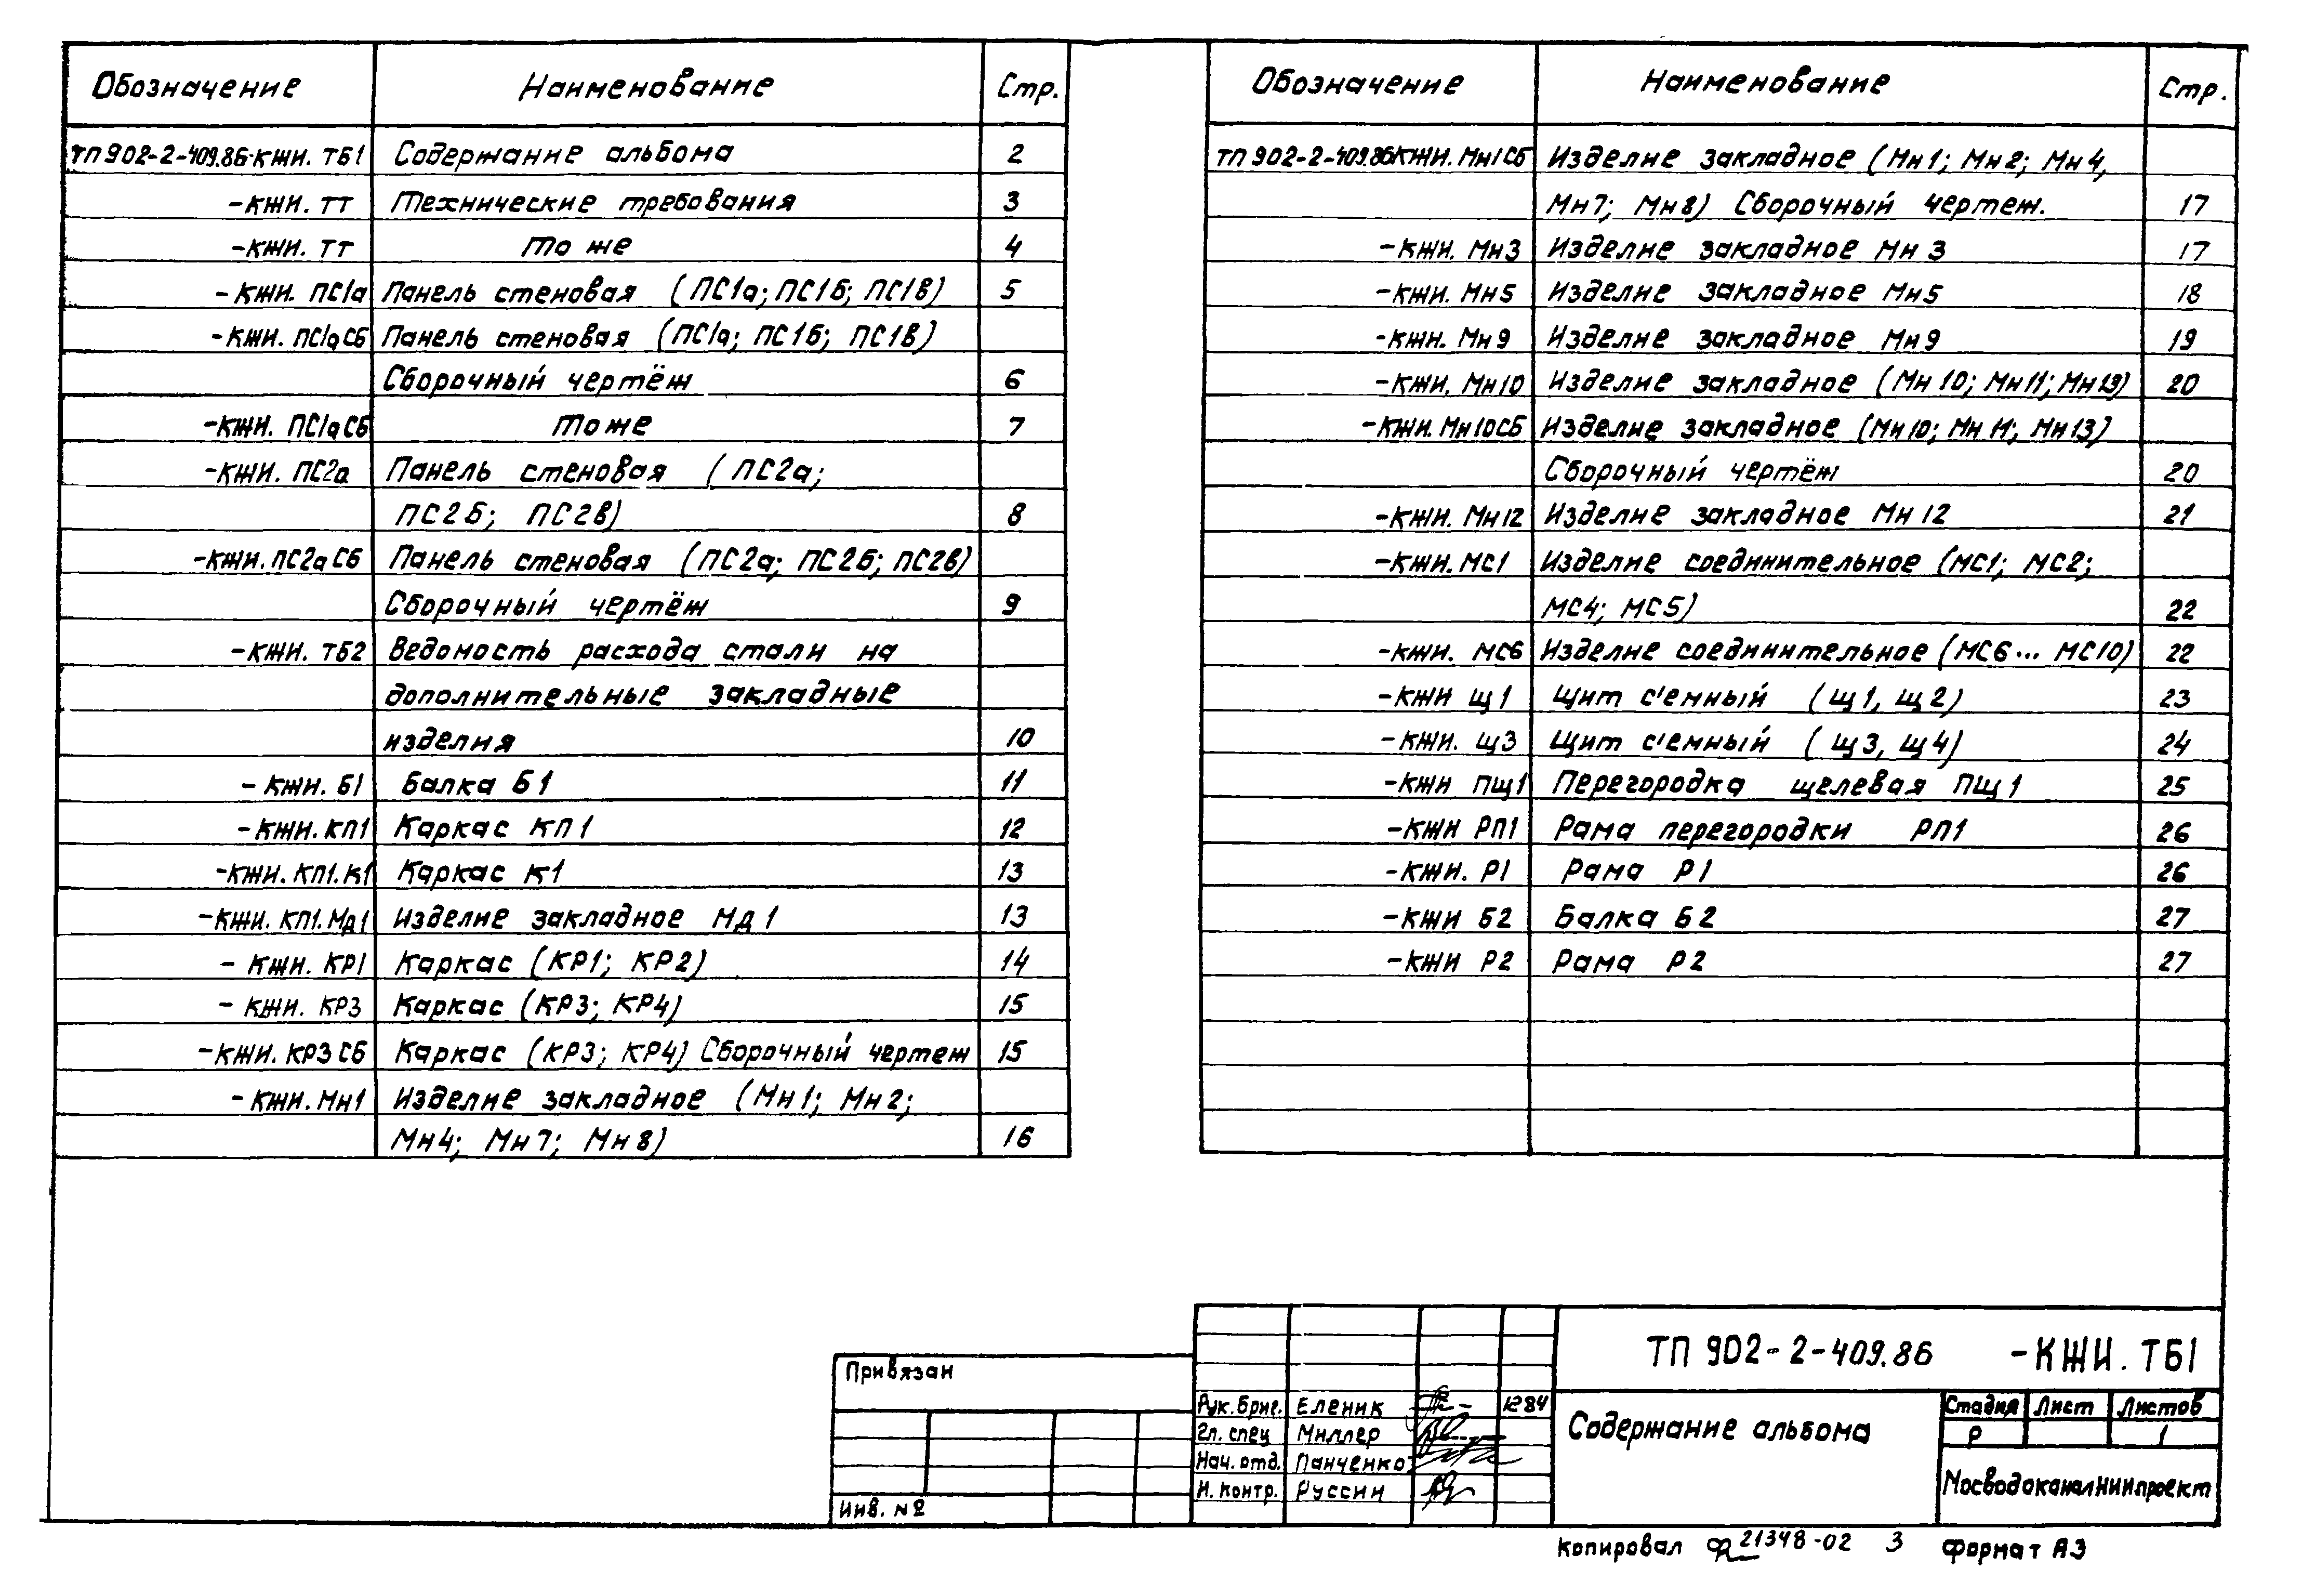 Обозначение Наименование Стр.
ТП 902-2-409.86-КЖИ. ТБ1 Содержание альбома 2
-КЖИ. ТТ Технические требования 3
-КЖИ. ТТ То же 4
-КЖИ. ПС1а Панель стеновая (ПС1а; ПС1б; ПС1в) 5
-КЖИ. ПС1аСБ Панель стеновая (ПС1а; ПС1б; ПС1в)
Сборочный чертёж 6
-КЖИ. ПС1аСБ То же 7
-КЖИ. ПС2а Панель стеновая (ПС2а;
ПС2б; ПС2в) 8
-КЖИ. ПС2аСБ Панель стеновая (ПС2а; ПС2б; ПС2в)
Сборочный чертёж 9
-КЖИ. ТБ2 Ведомость расхода стали на
дополнительные закладные
изделия 10
-КЖИ. Б1 Балка Б1 11
-КЖИ. КП1 Каркас КП1 12
-КЖИ. КП1.К1 Каркас К1 13
-КЖИ. КП1.Мд1 Изделие закладное Мд1 13
- КЖИ. КР1 Каркас (КР1; КР2) 14
- КЖИ. КР3 Каркас (КР3; КР4) 15
-КЖИ. КР3 СБ Каркас (КР3; КР4) Сборочный чертеж 15
- КЖИ. Мн1 Изделие закладное (Мн1; Мн2;
Мн4; Мн7; Мн8) 16
Обозначение Наименование Стр.
ТП 902-2-409.86КЖИ. Мн1СБ Изделие закладное (Мн1; Мн2; Мн4,
Мн7; Мн8) Сборочный чертеж. 17
-КЖИ. Мн3 Изделие закладное Мн3 17
-КЖИ. Мн5 Изделие закладное Мн5 18
-КЖИ. Мн9 Изделие закладное Мн9 19
-КЖИ. Мн10 Изделие закладное (Мн10; Мн11; Мн13) 20
-КЖИ. Мн10СБ Изделие закладное (Мн10; Мн11; Мн13)
Сборочный чертёж 20
-КЖИ. Мн12 Изделие закладное Мн12 21
-КЖИ. МС1 Изделие соединительное (МС1; МС2;
МС4; МС5) 22
-КЖИ. МС6 Изделие соединительное (МС6... МС10) 22
-КЖИ Щ1 Щит с'емный (Щ1, Щ2) 23
-КЖИ. Щ3 Щит с'емный (Щ3, Щ4) 24
-КЖИ ПЩ1 Перегородка щелевая ПЩ1 25
-КЖИ РП1 Рама перегородки РП1 26
-КЖИ. Р1 Рама Р1 26
-КЖИ Б2 Балка Б2 27
-КЖИ Р2 Рама Р2 27
Привязан
Инв. №
Рук. бриг. Еленик 1284
Гл. спец Миллер
Нач. отд. Панченко
Н. контр. Руссин
ТП 902-2-409.86 -КЖИ. ТБ1
Содержание альбома
Стадия Лист Листов
Р 1
МосводоканалНИИпроект
Копировал 21348-02 3 Формат А3